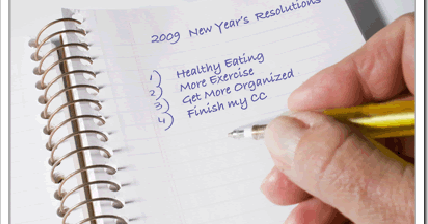 2009 New Year's Resolutions
1) Healthy Eating
2) More Exercise
3) Get More Organized
4) Finish my CC